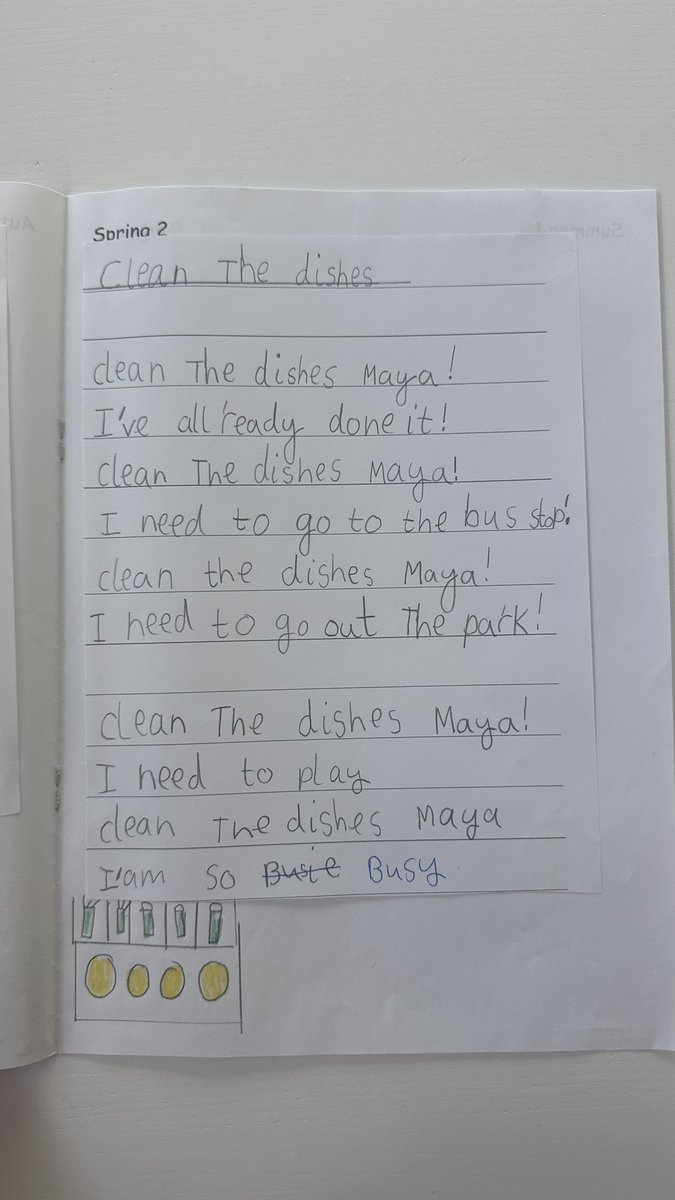 Spring 2
Clean The dishes
clean The dishes Maya!
I've all ready done it!
clean The dishes Maya!
I need to go to the bus stop!
clean the dishes Maya!
I need to go out The park!
clean The dishes Maya!
I need to play
clean The dishes Maya
I'am so Busie Busy